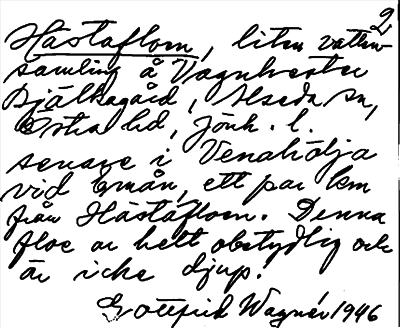 2
Hästaflon, liten vatten-
samling å Vagnhester
Bjälkagård, Alseda sn,
Östra hd, Jönk. l.
senare i Venahölja
vid Emån, ett par km
från Hästaflon. Denna
floe är helt obetydlig och
är icke djup.
Gottfrid Wagnér 1946